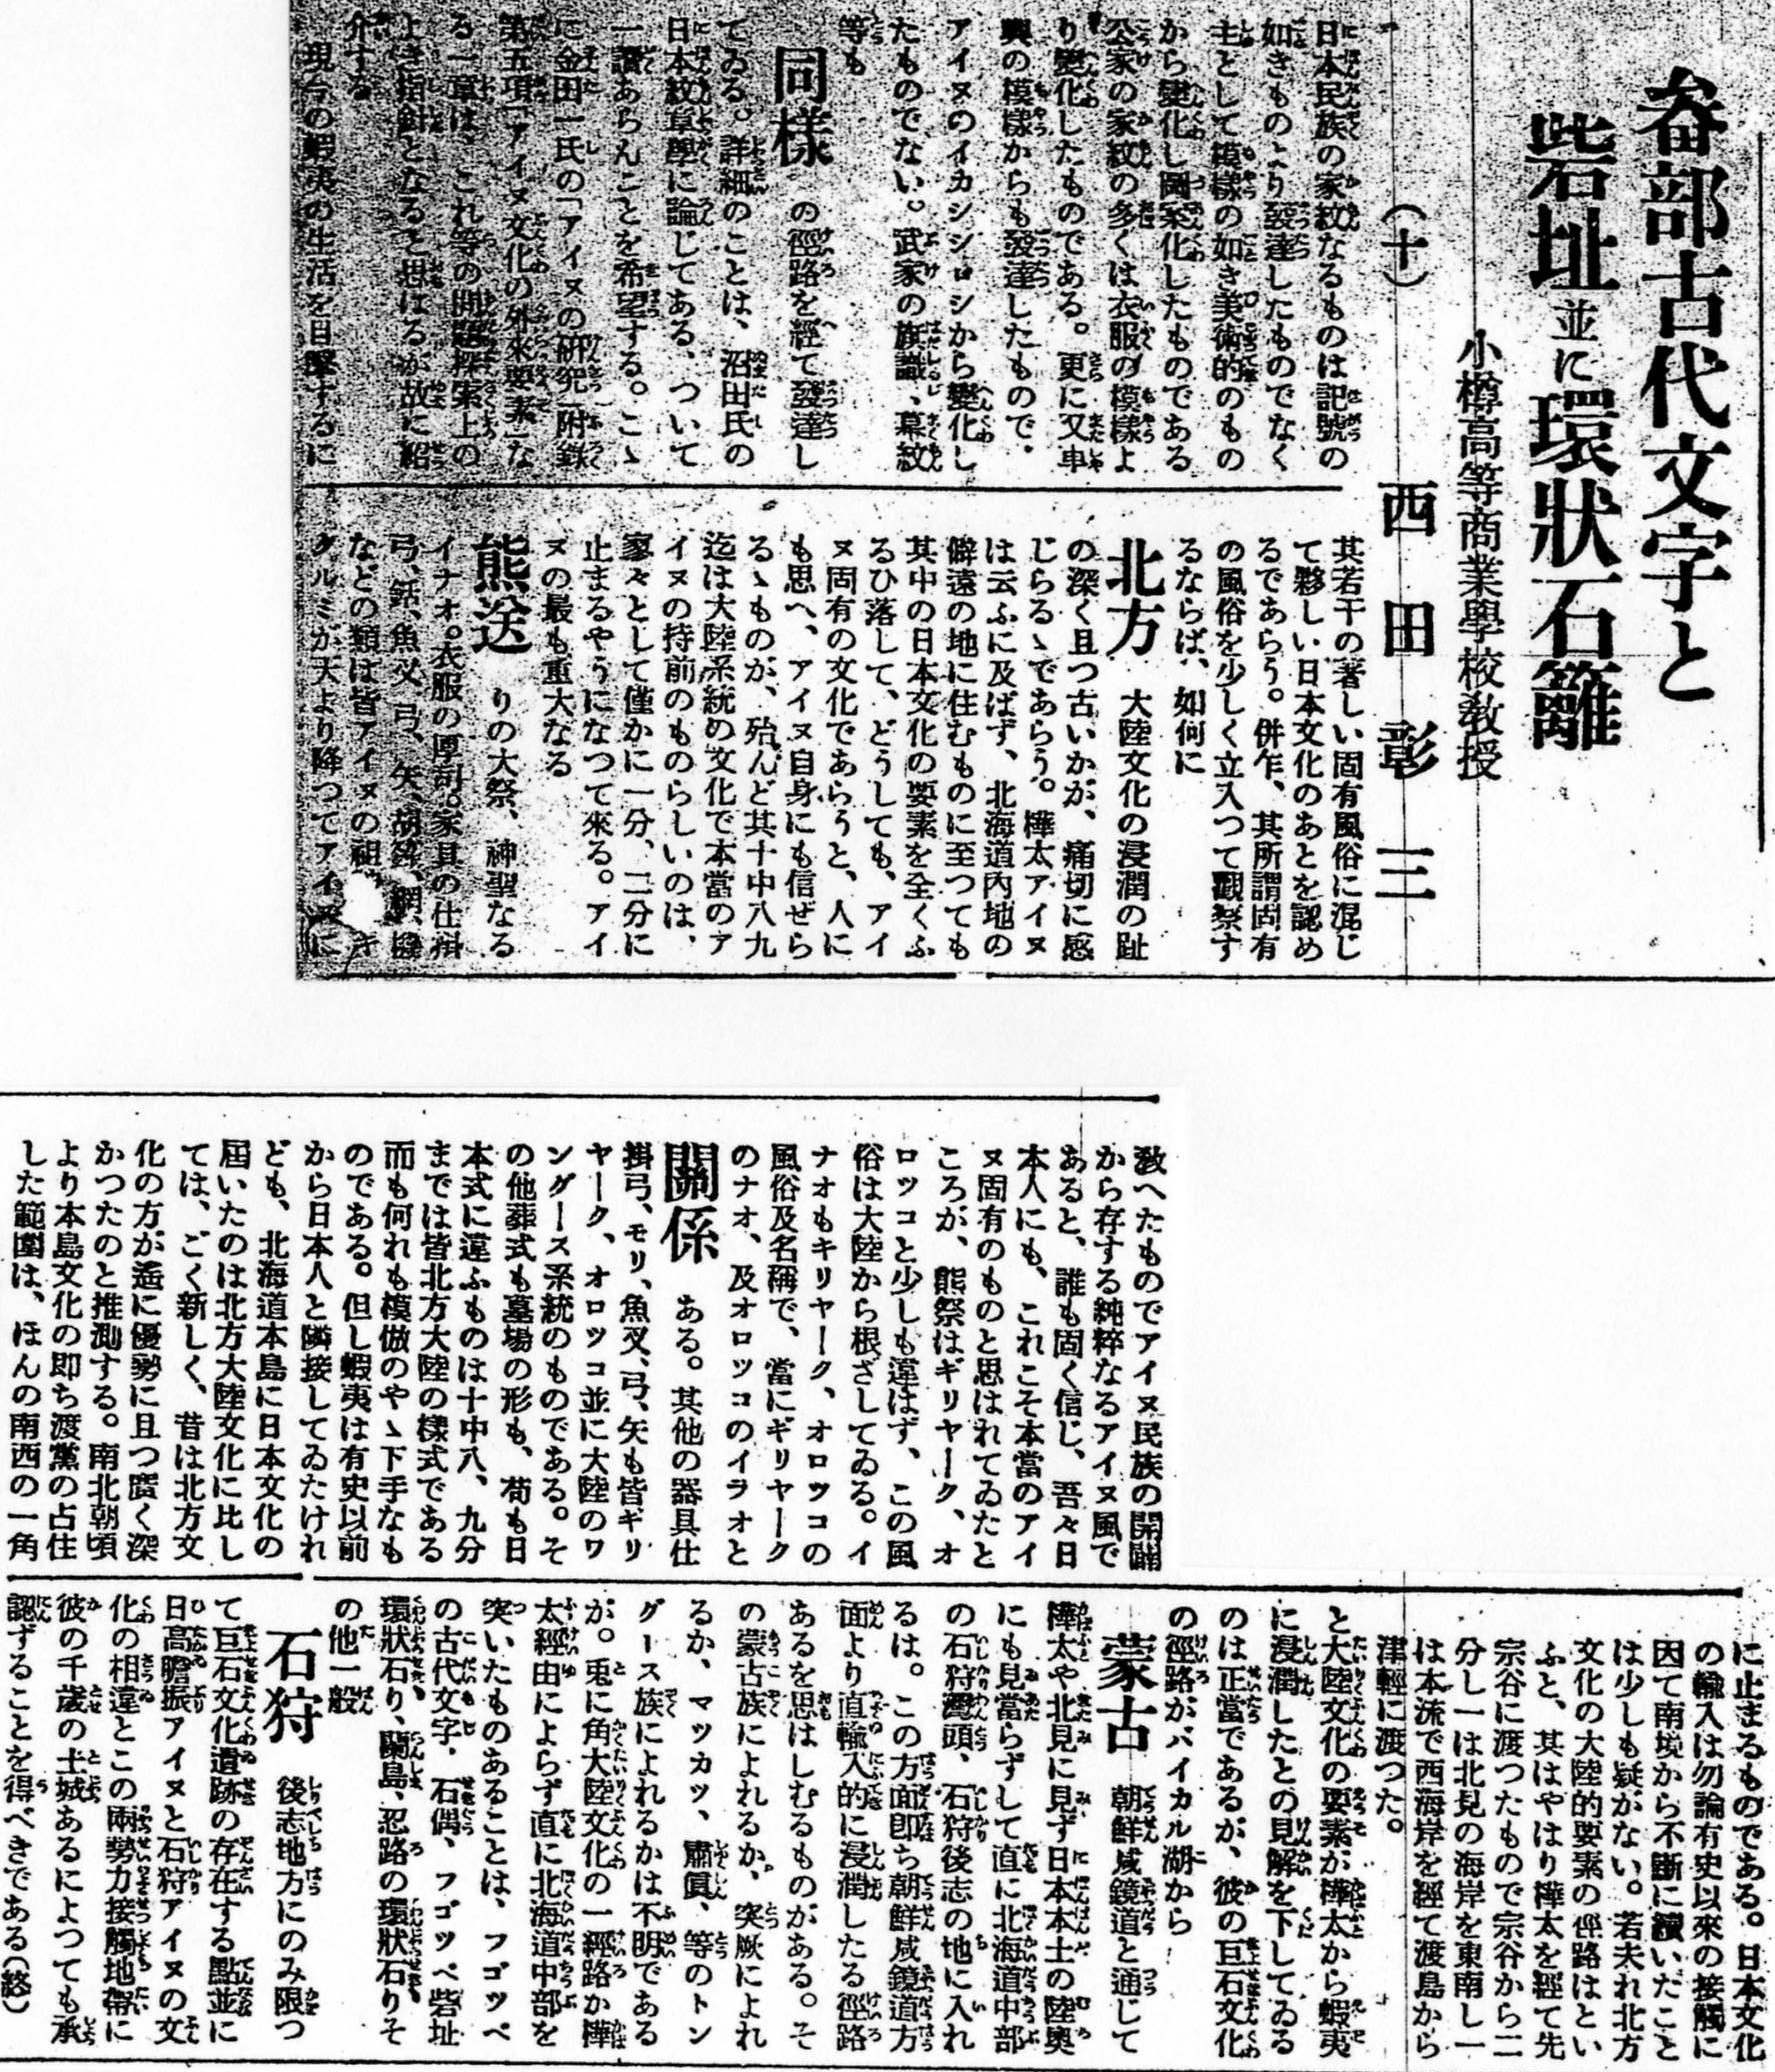 畚部古代文字と
砦址並に環狀石籬
小樽高等商業學校敎授
西田彰三
（十）
日本民族の家紋なるものは記號の
如きものより發達したものでなく
主として模樣の如き美術的のもの
から變化し圖案化したものである
公家の家紋の多くは衣服の模樣よ
り變化したものである。更に又車
輿の模樣からも發達したもので、
アイヌのイカシシロシから變化し
たものでない。武家の旗識、幕紋
等も
同樣の徑路を經て發達し
てゐる。詳細のことは、沼田氏の
日本紋章學に論じてある、ついて
一讀あらんことを希望する。こゝ
に金田一氏の「アイヌの硏究」附錄
第五項「アイヌ文化の外來要素」な
る一章は、これ等の問題探索上の
よき指針となると思はるが故に紹
介する
現今の蝦夷の生活を目擊するに
其若干の著しい固有風俗に混じ
て夥しい日本文化のあとを認め
るであらう。併乍、其所謂固有
の風俗を少しく立入つて觀察す
るならば、如何に
北方大陸文化の浸潤の趾
の深く且つ古いかが、痛切に感
じらるゝであらう。樺太アイヌ
は云ふに及ばず、北海道內地の
僻遠の地に住むものに至つても
其中の日本文化の要素を全くふ
るひ落して、どうしても、アイ
ヌ固有の文化であらうと、人に
も思へ、アイヌ自身にも信ぜら
るゝものが、殆んど其十中八九
迄は大陸系統の文化で本當のア
イヌの持前のものらしいのは、
寥々として僅かに一分、二分に
止まるやうになつて來る。アイ
ヌの最も重大なる
熊送りの大祭、神聖なる
イナオ。衣服の厚司。家具の仕掛
弓、銛、魚叉、弓、矢、胡籙、網、橇
などの類は皆アイヌの祖オキ
クルミが天より降つてアイヌに
敎へたものでアイヌ民族の開闢
から存する純粹なるアイヌ風で
あると、誰も固く信じ、吾々日
本人にも、これこそ本當のアイ
ヌ固有のものと思はれてゐたと
ころが、熊祭はギリヤーク、オ
ロツコと少しも違はず、この風
俗は大陸から根ざしてゐる。イ
ナオもキリヤーク、オロツコの
風俗及名稱で、當にギリヤーク
のナオ、及オロツコのイラオと
關係ある。其他の器具仕
掛弓、モリ、魚叉、弓、矢も皆ギリ
ヤーク、オロツコ並に大陸のワ
ングース系統のものである。そ
の他葬式も墓場の形も、苟も日
本式に違ふものは十中八、九分
までは皆北方大陸の樣式である
而も何れも模倣のやゝ下手なも
のである。但し蝦夷は有史以前
から日本人と隣接してゐたけれ
ども、北海道本島に日本文化の
屆いたのは北方大陸文化に比し
ては、ごく新しく、昔は北方文
化の方が遙に優勢に且つ廣く深
かつたのと推測する。南北朝頃
より本島文化の卽ち渡黨の占住
した範圍は、ほんの南西の一角
に止まるものである。日本文化
の輸入は勿論有史以來の接觸に
因て南境から不斷に續いたこと
は少しも疑がない。若夫れ北方
文化の大陸的要素の徑路はとい
ふと、其はやはり樺太を經て先
宗谷に渡つたもので宗谷から二
分し一は北見の海岸を東南し一
は本流で西海岸を經て渡島から
津輕に渡つた。
と大陸文化の要素が樺太から蝦夷
に浸潤したとの見解を下してゐる
のは正當であるが、彼の巨石文化
の徑路がバイカル湖から
蒙古朝鮮咸鏡道と通じて
樺太や北見に見ず日本本土の陸奧
にも見當らずして直に北海道中部
の石狩灣頭、石狩後志の地に入れ
るは。この方面卽ち朝鮮咸鏡道方
面より直輸入的に浸潤したる徑路
あるを思はしむるものがある。そ
の蒙古族によれるか、突厥によれ
るか、マツカツ、肅愼、等のトン
グース族によれるかは不明である
が。兎に角大陸文化の一經路か樺
太經由によらず直に北海道中部を
突いたものあることは、フゴツペ
の古代文字、石偶、フゴツペ砦址
環狀石り、蘭島、忍路の環狀石りそ
の他一般
石狩後志地方にのみ限つ
て巨石文化遺跡の存在する點並に
日高膽振アイヌと石狩アイヌの文
化の相違とこの兩勢力接觸地帶に
彼の千歲の土城あるによつても承
認ずることを得べきである（終）